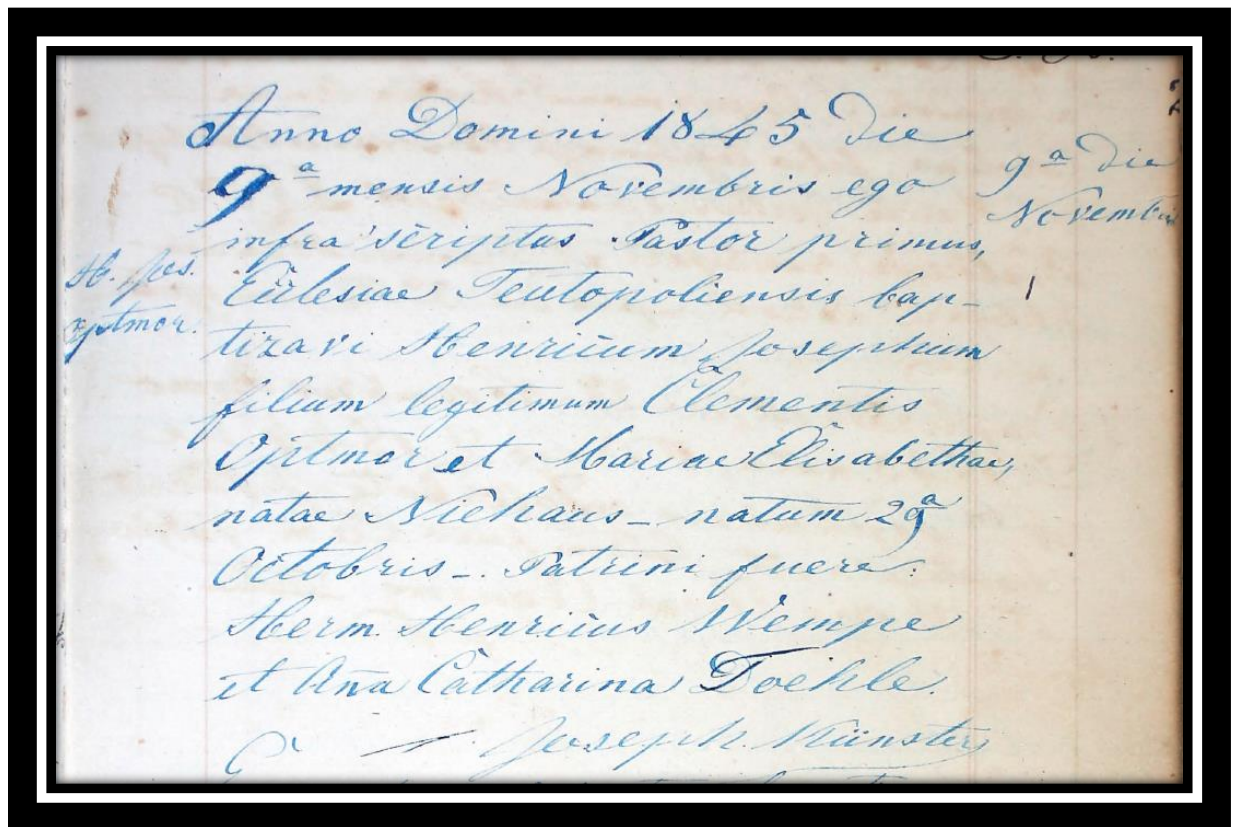 Anno Domini 1845 die
9ª mensis Novembris ego
infra scriptus Pastor primus,
Ecclesiae Teutopoliensis bap-
tizavi Henricum Josephum
filium legitimum Clementis
Optmor et Mariae Elisabethae,
natae Niehaus - natum 29ª
Octobris - Patrini fuere:
Herm. Henricus Wempe
et Ana Catharina Doehle.
Joseph Künster
H. Jos.
Optmor.
9ª die
Novembris
1